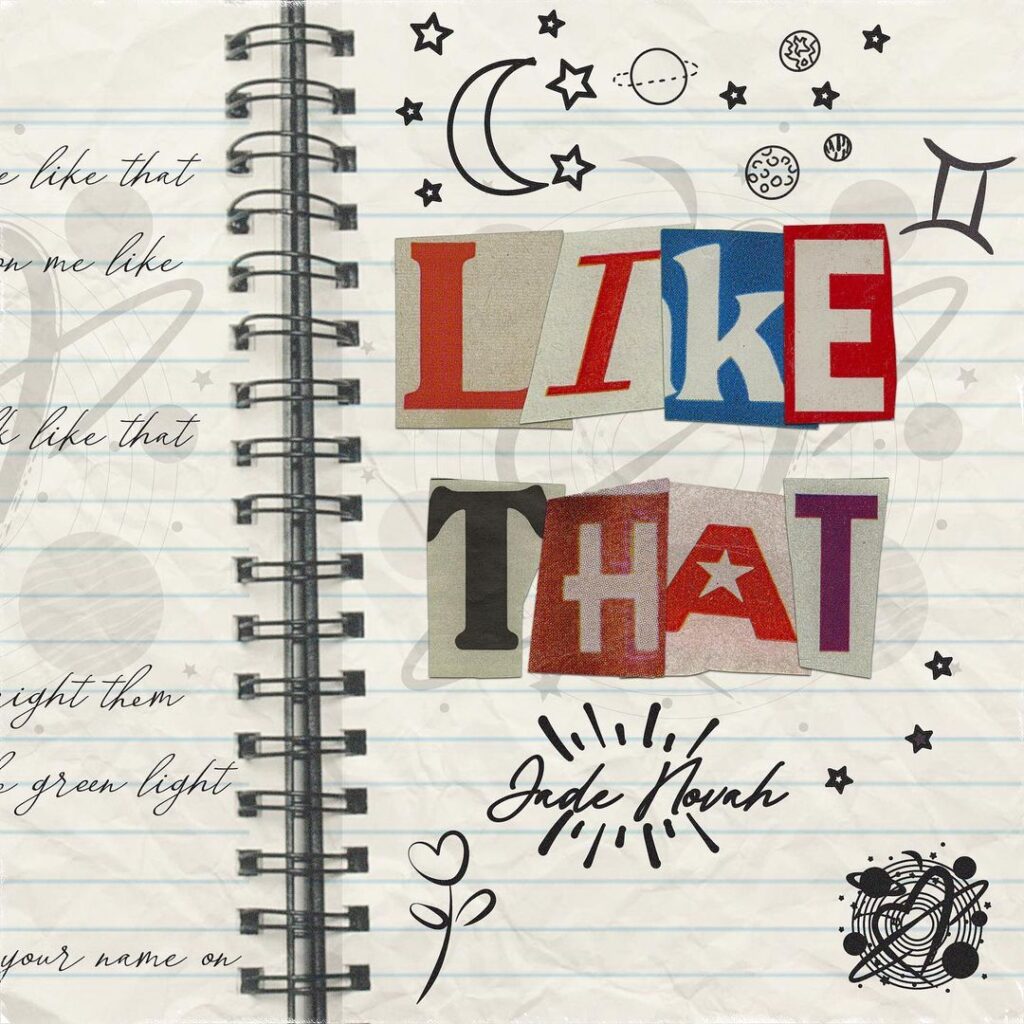 like that
on me like
like that
right them
green light
your name on
LIkE
THAT
Jade Novah